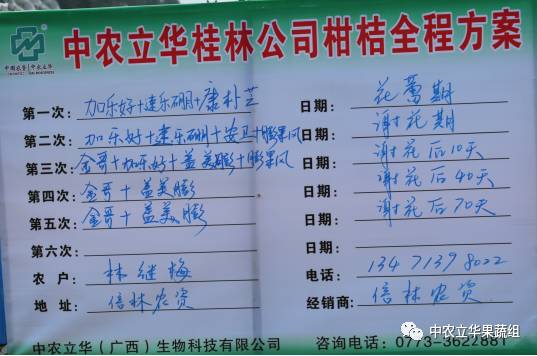 中农立华桂林公司柑桔全程方案
中国农资 中农立华
第一次: 加乐好+速乐硼+康朴芝 日期: 花蕾期
第二次: 加乐好+速乐硼+安卫+膨果风 日期: 谢花期
第三次: 金哥+加乐好+益美膨+膨果风 日期: 谢花后10天
第四次: 金哥+益美膨 日期: 谢花后40天
第五次: 金哥+益美膨 日期: 谢花后70天
第六次: 日期:
农户: 林继梅 电话: 13471398022
地址: 倍林农资 经销商: 倍林农资
中农立华(广西)生物科技有限公司 咨询电话: 0773-3622881
中农立华果蔬组